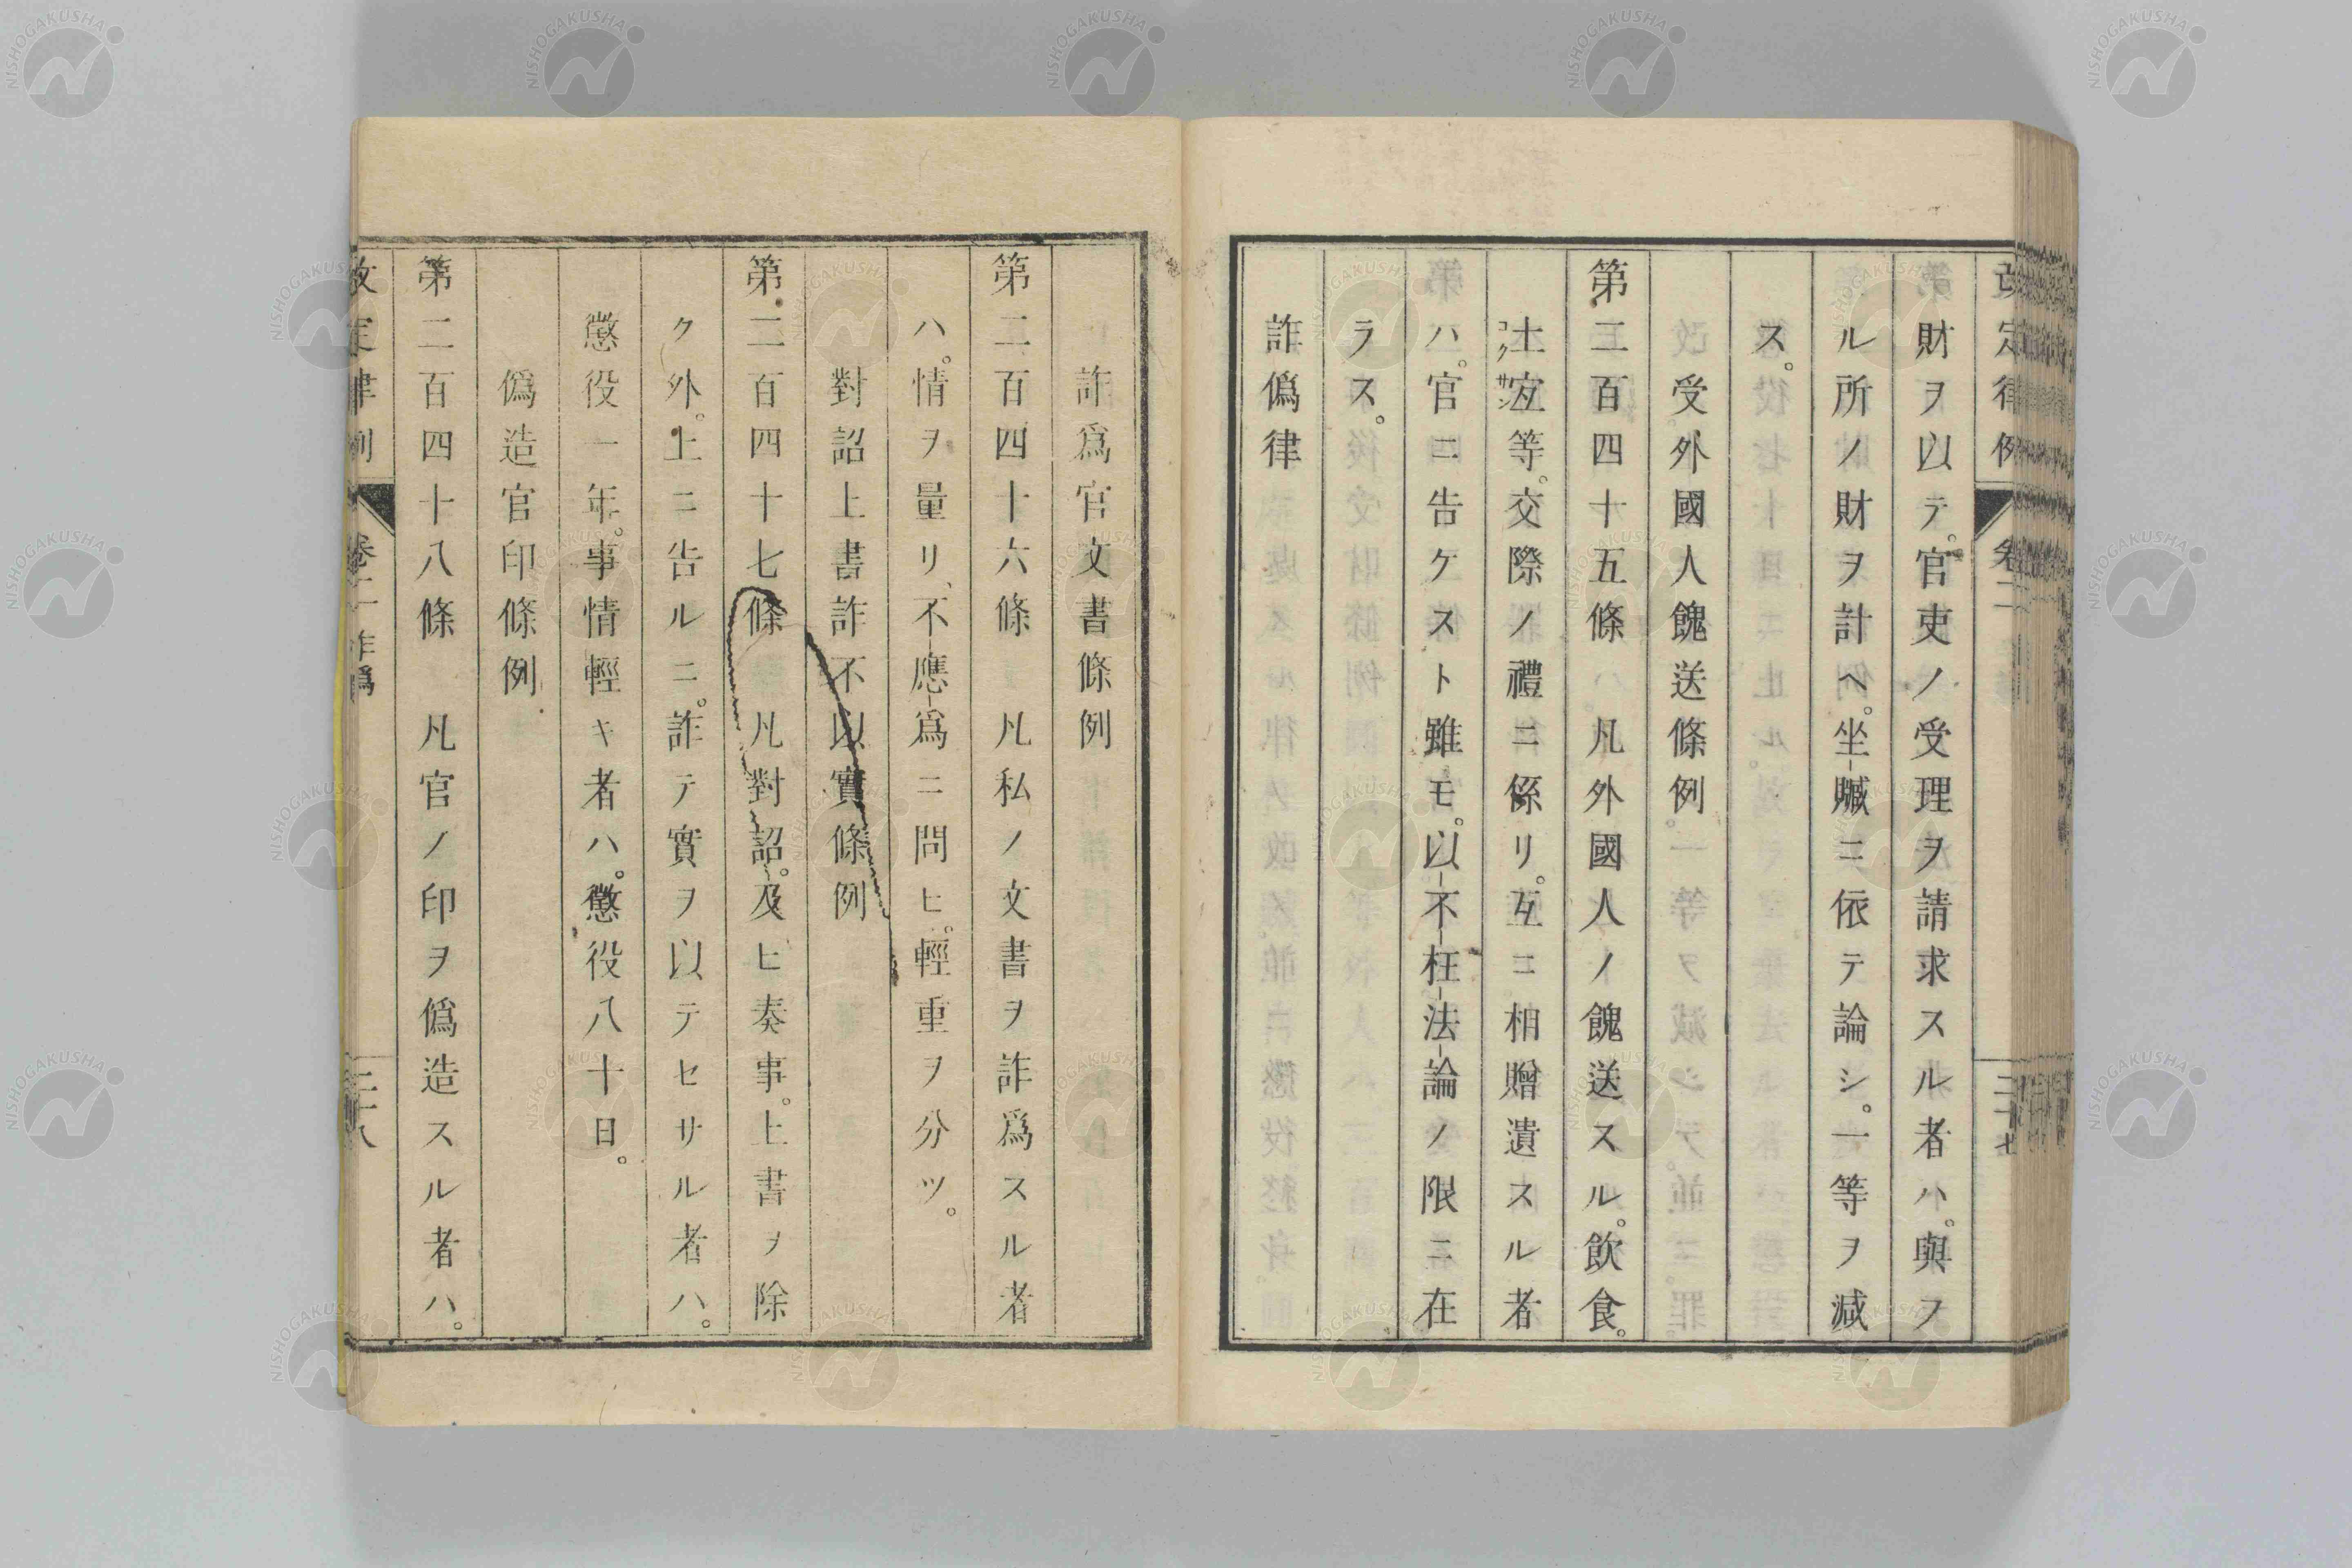 改定律例 卷二 三十七
財ヲ以テ。官吏ノ受理ヲ請求スル者ハ。與フ
ル所ノ財ヲ計ヘ。坐贓ニ依テ論シ。一等ヲ減
ス。
受外國人餽送條例
第二百四十五條 凡外國人ノ餽送スル。飲食。
土宜等。交際ノ禮ニ係リ。互ニ相贈遺スル者
コクサン
ハ。官ニ告ケスト雖モ。以不枉法論ノ限ニ在
ラス。
詐僞律
詐爲官文書條例
第二百四十六條 凡私ノ文書ヲ詐爲スル者
ハ。情ヲ量リ、不應爲ニ問ヒ。輕重ヲ分ツ。
對詔上書詐不以實條例
第二百四十七條 凡對詔。及ヒ奏事。上書ヲ除
ク外。上ニ告ルニ。詐テ實ヲ以テセサル者ハ。
懲役一年。事情輕キ者ハ。懲役八十日。
僞造官印條例
第二百四十八條 凡官ノ印ヲ僞造スル者ハ。
改定律例 卷二 詐僞 三十八
NISHOGAKUSHA